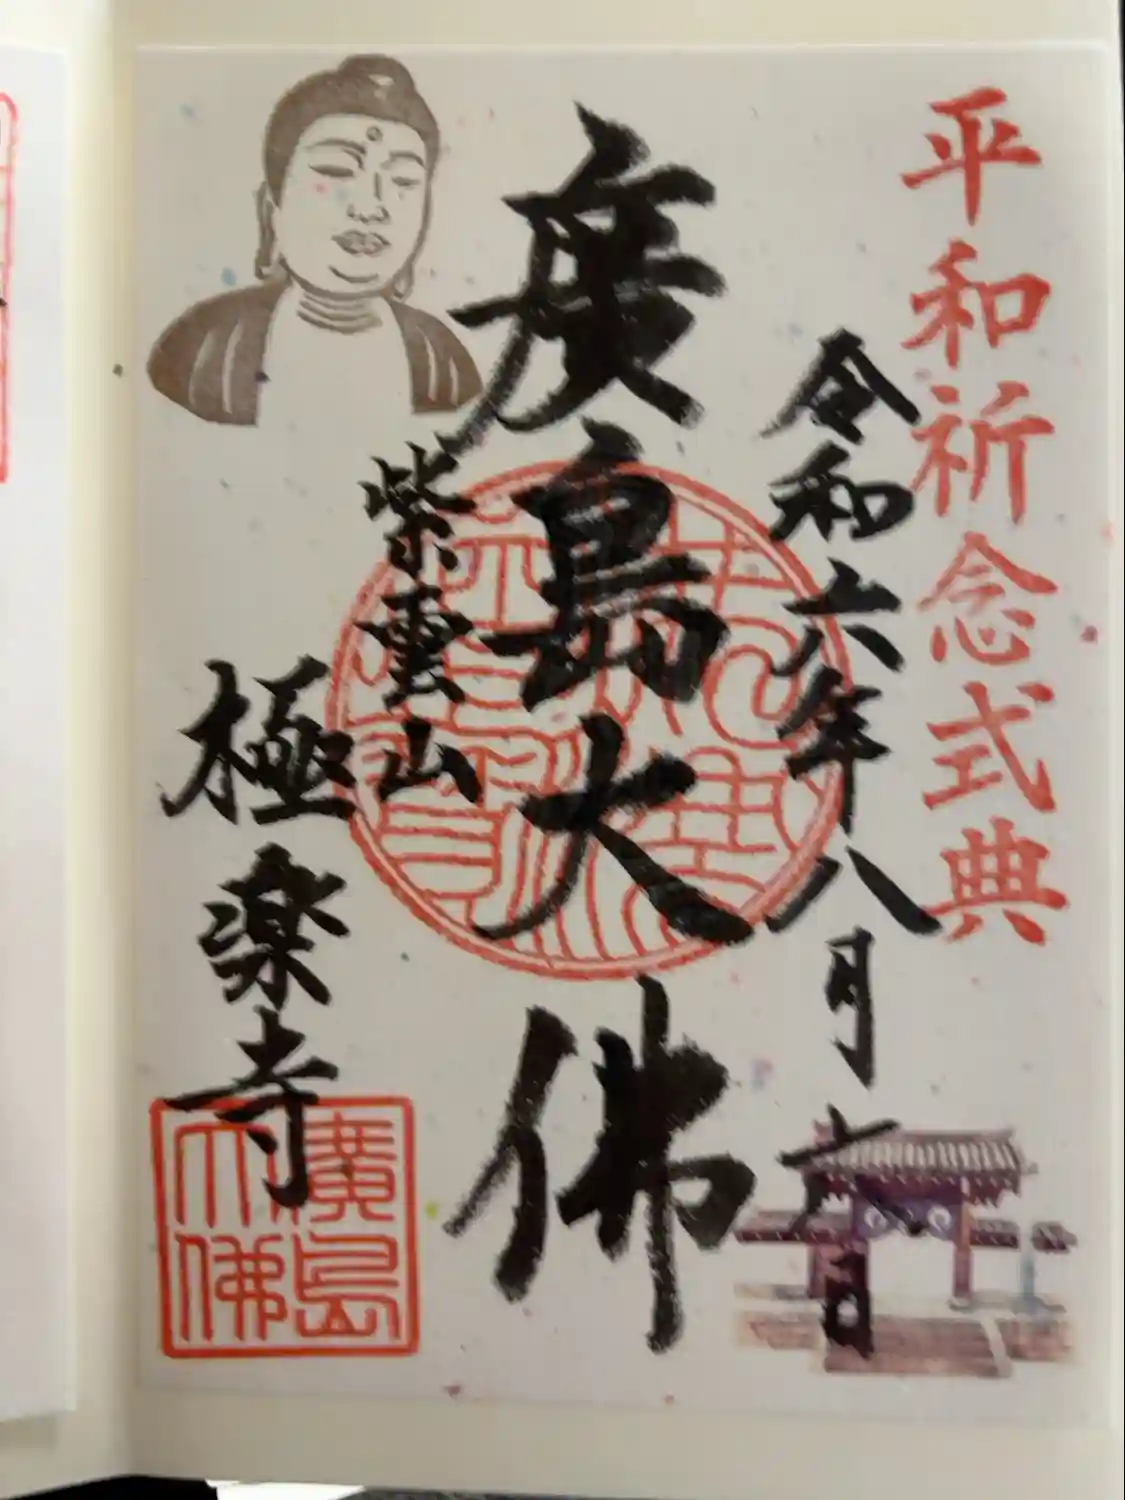 平和祈念式典
令和六年八月六日
廣島大佛
紫雲山
極楽寺
廣島
大佛